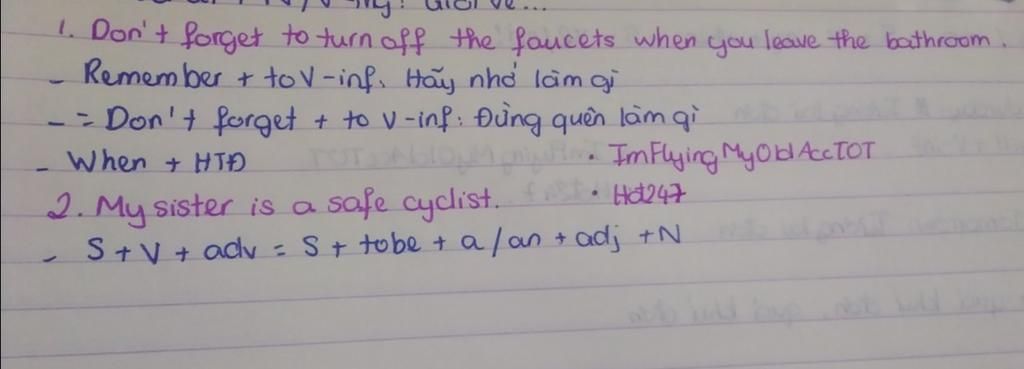 1. Don't forget to turn off the faucets when you leave the bathroom.
- Remember + to V-inf: Hãy nhớ làm gì
- = Don't forget + to V-inf: Đừng quên làm gì
- When + HTĐ
• ImFlyingMyOldAccTOT
2. My sister is a safe cyclist.
• Hd247
- S + V + adv = S + tobe + a/an + adj + N